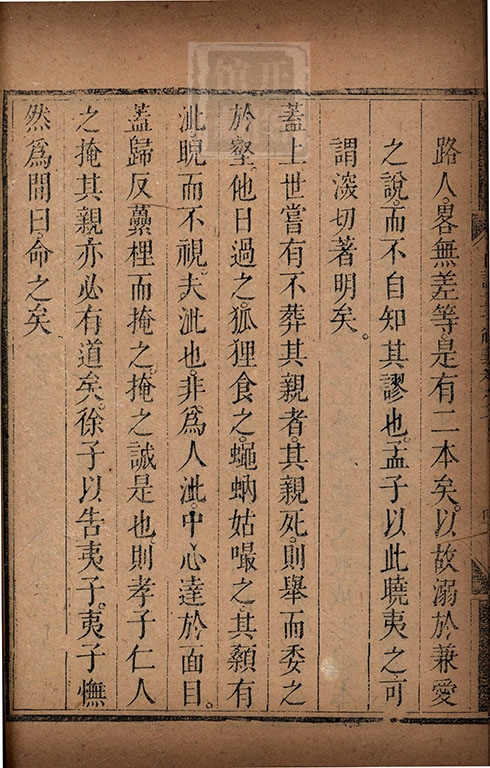 路人畧無差等是有二本矣以故溺於兼愛
之說而不自知其謬也孟子以此曉夷之可
謂深切著明矣
蓋上世嘗有不葬其親者其親死則舉而委之
於壑他日過之狐狸食之蠅蚋姑嘬之其顙有
泚睨而不視夫泚也非爲人泚中心達於面目
蓋歸反虆梩而掩之掩之誠是也則孝子仁人
之掩其親亦必有道矣徐子以告夷子夷子憮
然爲間曰命之矣